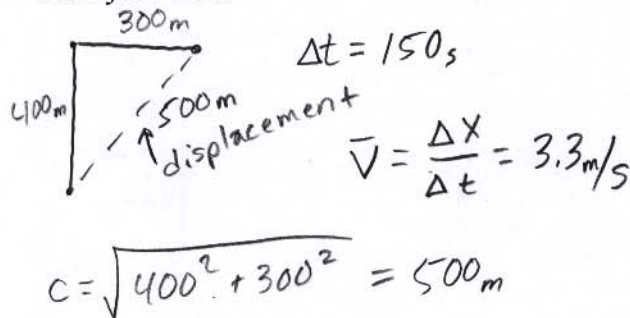 300m
Δt = 150s
400m
500m
displacement
V̄ = ΔX/Δt = 3.3m/s
c = √(400² + 300²) = 500m